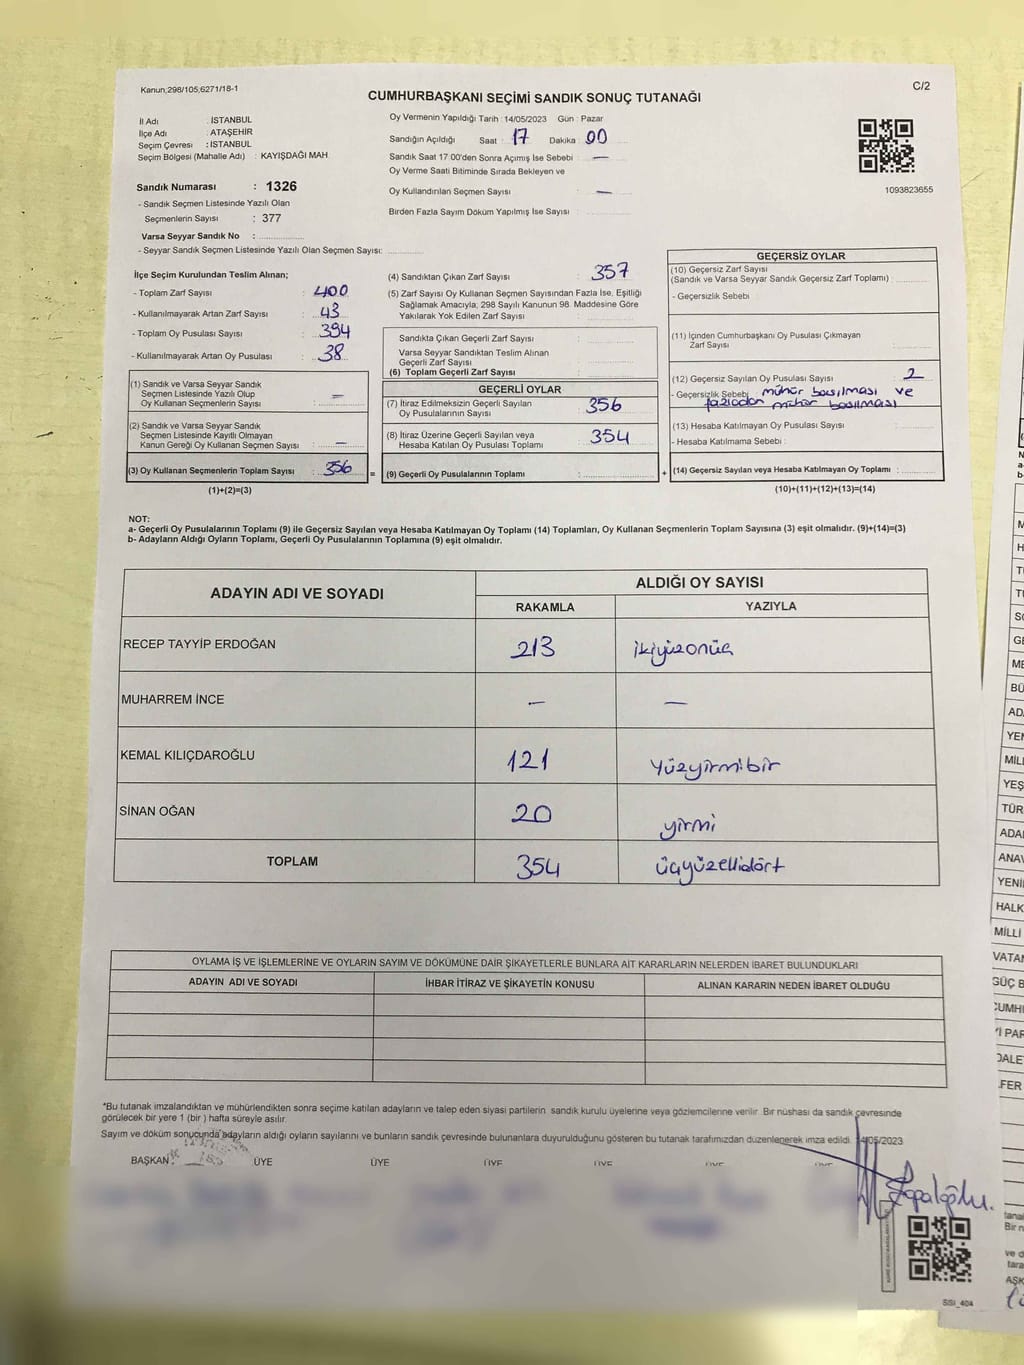 Kanun;298/105,6271/18-1
C/2
CUMHURBAŞKANI SEÇİMİ SANDIK SONUÇ TUTANAĞI
İl Adı : İSTANBUL
İlçe Adı : ATAŞEHİR
Seçim Çevresi : İSTANBUL
Seçim Bölgesi (Mahalle Adı) : KAYIŞDAĞI MAH
Sandık Numarası : 1326
- Sandık Seçmen Listesinde Yazılı Olan
Seçmenlerin Sayısı : 377
Varsa Seyyar Sandık No :
- Seyyar Sandık Seçmen Listesinde Yazılı Olan Seçmen Sayısı:
Oy Vermenin Yapıldığı Tarih : 14/05/2023 Gün : Pazar
Sandığın Açıldığı Saat : 17 Dakika : 00
Sandık Saat 17 00'den Sonra Açımış İse Sebebi : —
Oy Verme Saati Bitiminde Sırada Bekleyen ve
Oy Kullandırılan Seçmen Sayısı : —
Birden Fazla Sayım Döküm Yapılmış İse Sayısı :
1093823655
İlçe Seçim Kurulundan Teslim Alınan;
- Toplam Zarf Sayısı : 400
- Kullanılmayarak Artan Zarf Sayısı : 43
- Toplam Oy Pusulası Sayısı : 394
- Kullanılmayarak Artan Oy Pusulası : 38
(1) Sandık ve Varsa Seyyar Sandık
Seçmen Listesinde Yazılı Olup
Oy Kullanan Seçmenlerin Sayısı : —
(2) Sandık ve Varsa Seyyar Sandık
Seçmen Listesinde Kayıtlı Olmayan
Kanun Gereği Oy Kullanan Seçmen Sayısı : —
(3) Oy Kullanan Seçmenlerin Toplam Sayısı : 356 =
(1)+(2)=(3)
(4) Sandıktan Çıkan Zarf Sayısı : 357
(5) Zarf Sayısı Oy Kullanan Seçmen Sayısından Fazla İse, Eşitliği
Sağlamak Amacıyla, 298 Sayılı Kanunun 98. Maddesine Göre
Yakılarak Yok Edilen Zarf Sayısı :
Sandıkta Çıkan Geçerli Zarf Sayısı :
Varsa Seyyar Sandıktan Teslim Alınan
Geçerli Zarf Sayısı :
(6) Toplam Geçerli Zarf Sayısı :
GEÇERLİ OYLAR
(7) İtiraz Edilmeksizin Geçerli Sayılan
Oy Pusulalarının Sayısı : 356
(8) İtiraz Üzerine Geçerli Sayılan veya
Hesaba Katılan Oy Pusulası Toplamı : 354
(9) Geçerli Oy Pusulalarının Toplamı : +
GEÇERSİZ OYLAR
(10) Geçersiz Zarf Sayısı
(Sandık ve Varsa Seyyar Sandık Geçersiz Zarf Toplamı) :
- Geçersizlik Sebebi :
(11) İçinden Cumhurbaşkanı Oy Pusulası Çıkmayan
Zarf Sayısı :
(12) Geçersiz Sayılan Oy Pusulası Sayısı : 2
- Geçersizlik Sebebi : mühür basılması ve
fazladan mühür basılması
(13) Hesaba Katılmayan Oy Pusulası Sayısı :
- Hesaba Katılmama Sebebi :
(14) Geçersiz Sayılan veya Hesaba Katılmayan Oy Toplamı :
(10)+(11)+(12)+(13)=(14)
NOT:
a- Geçerli Oy Pusulalarının Toplamı (9) ile Geçersiz Sayılan veya Hesaba Katılmayan Oy Toplamı (14) Toplamları, Oy Kullanan Seçmenlerin Toplam Sayısına (3) eşit olmalıdır. (9)+(14)=(3)
b- Adayların Aldığı Oyların Toplamı, Geçerli Oy Pusulalarının Toplamına (9) eşit olmalıdır.
ADAYIN ADI VE SOYADI
ALDIĞI OY SAYISI
RAKAMLA YAZIYLA
RECEP TAYYİP ERDOĞAN 213 ikiyüzonüç
MUHARREM İNCE — —
KEMAL KILIÇDAROĞLU 121 Yüzyirmibir
SİNAN OĞAN 20 yirmi
TOPLAM 354 üçyüzellidört
OYLAMA İŞ VE İŞLEMLERİNE VE OYLARIN SAYIM VE DÖKÜMÜNE DAİR ŞİKAYETLERLE BUNLARA AİT KARARLARIN NELERDEN İBARET BULUNDUKLARI
ADAYIN ADI VE SOYADI İHBAR İTİRAZ VE ŞİKAYETİN KONUSU ALINAN KARARIN NEDEN İBARET OLDUĞU
*Bu tutanak imzalandıktan ve mühürlendikten sonra seçime katılan adayların ve talep eden siyasi partilerin sandık kurulu üyelerine veya gözlemcilerine verilir. Bir nüshası da sandık çevresinde
görülecek bir yere 1 (bir ) hafta süreyle asılır.
Sayım ve döküm sonucunda adayların aldığı oyların sayılarını ve bunların sandık çevresinde bulunanlara duyurulduğunu gösteren bu tutanak tarafımızdan düzenlenerek imza edildi. 14/05/2023
BAŞKAN ÜYE ÜYE ÜYE ÜYE ÜYE ÜYE
SSI_404